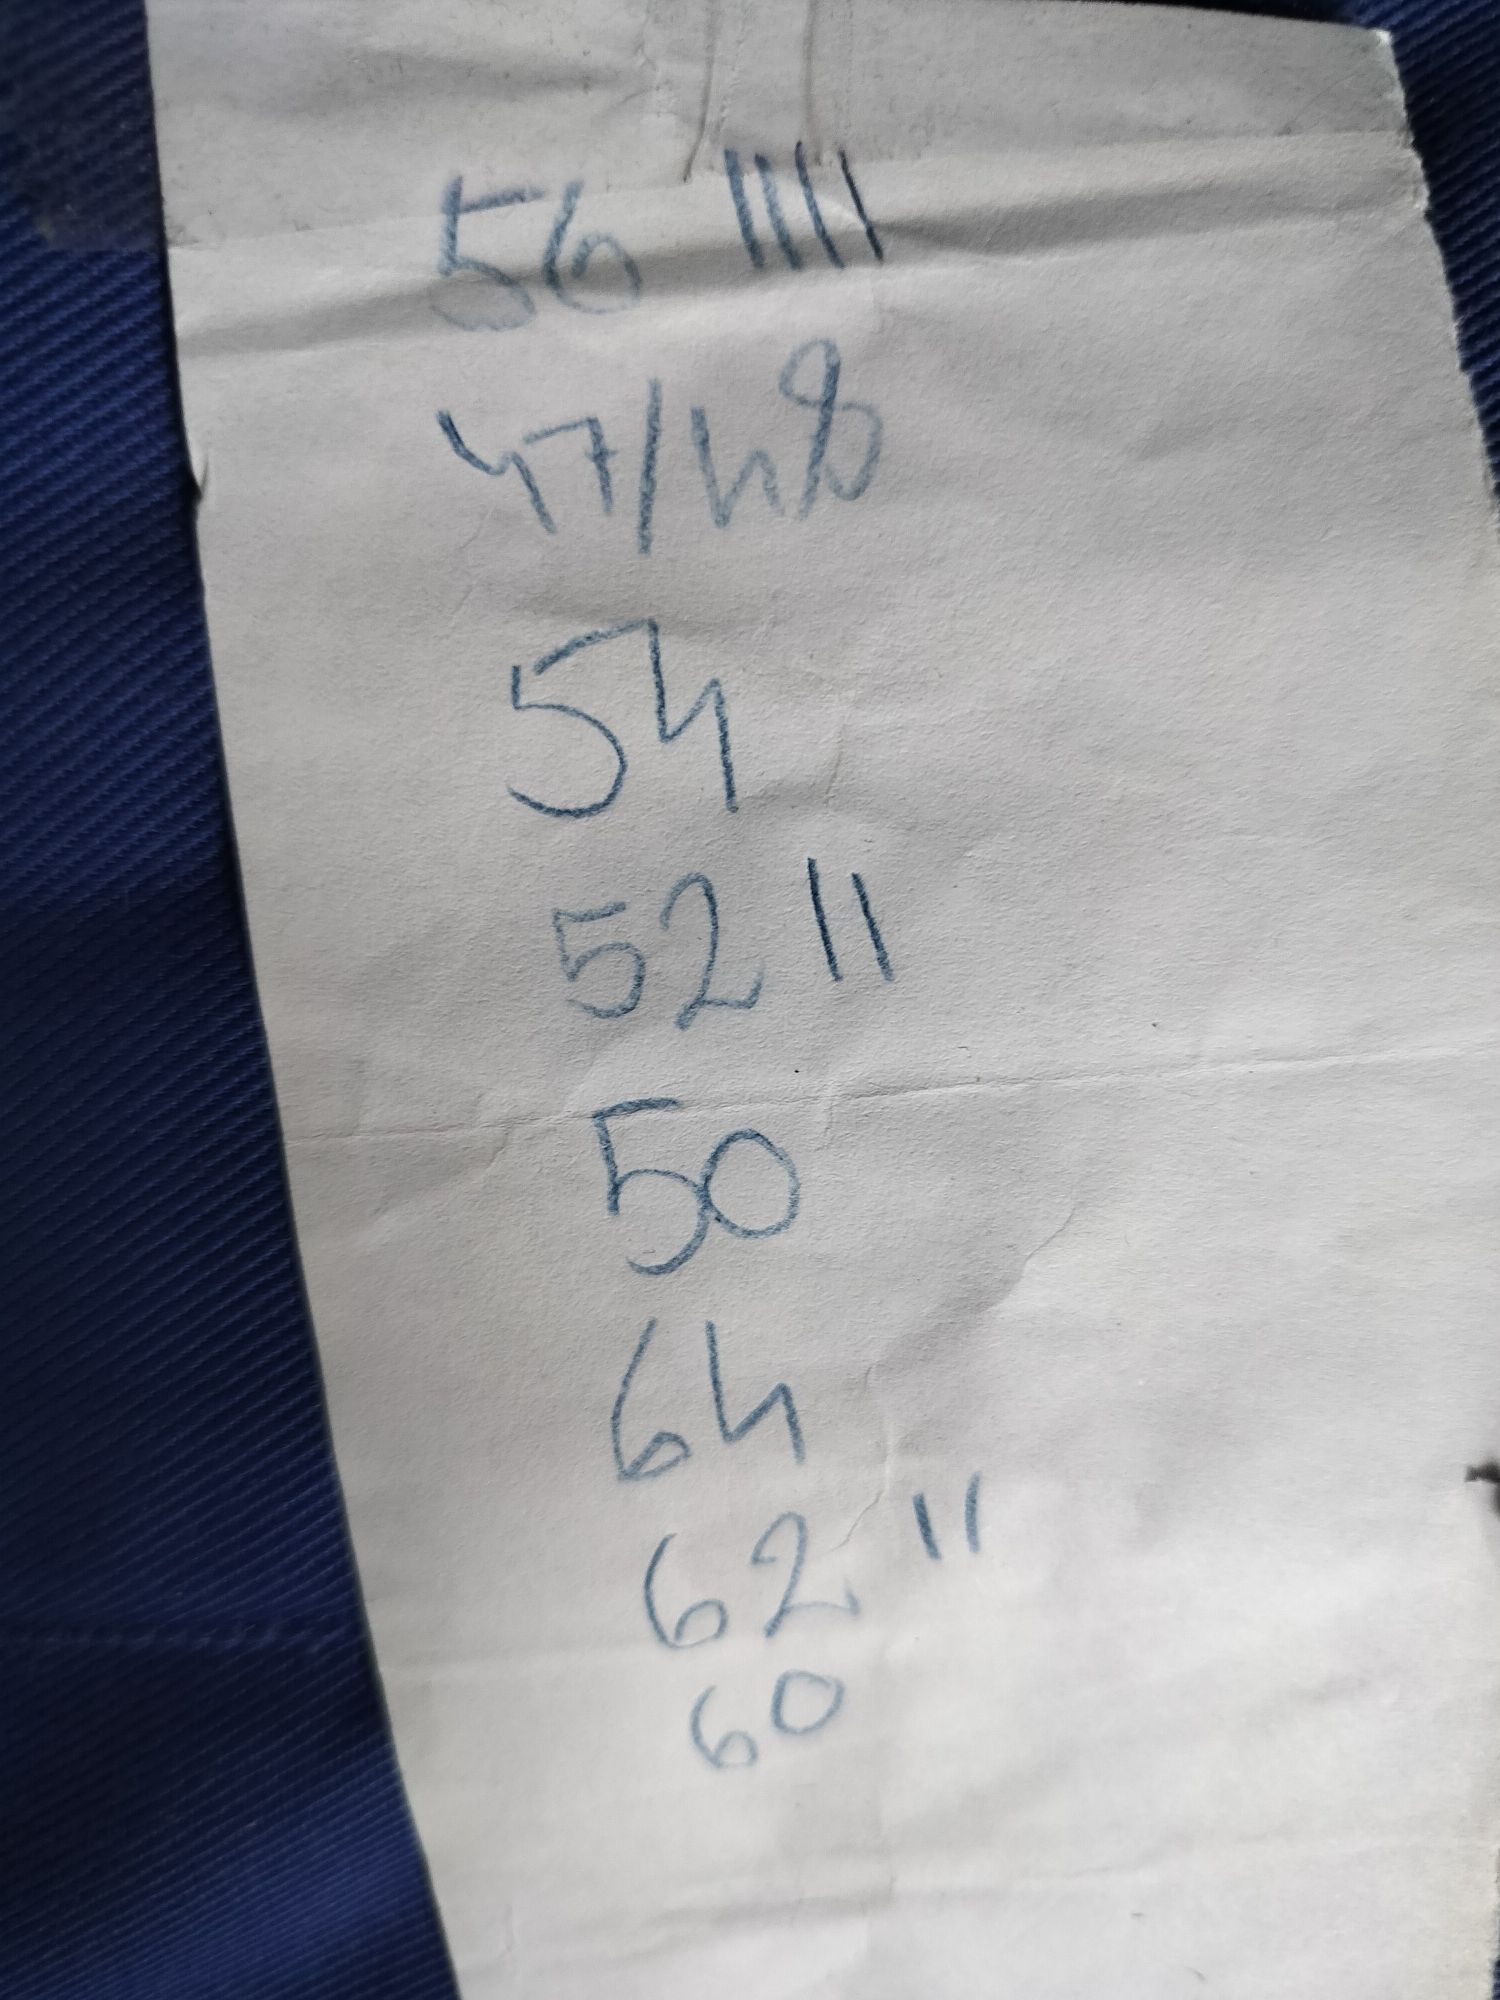 56 ||||
47/48
54
52 ||
50
64
62 ||
60